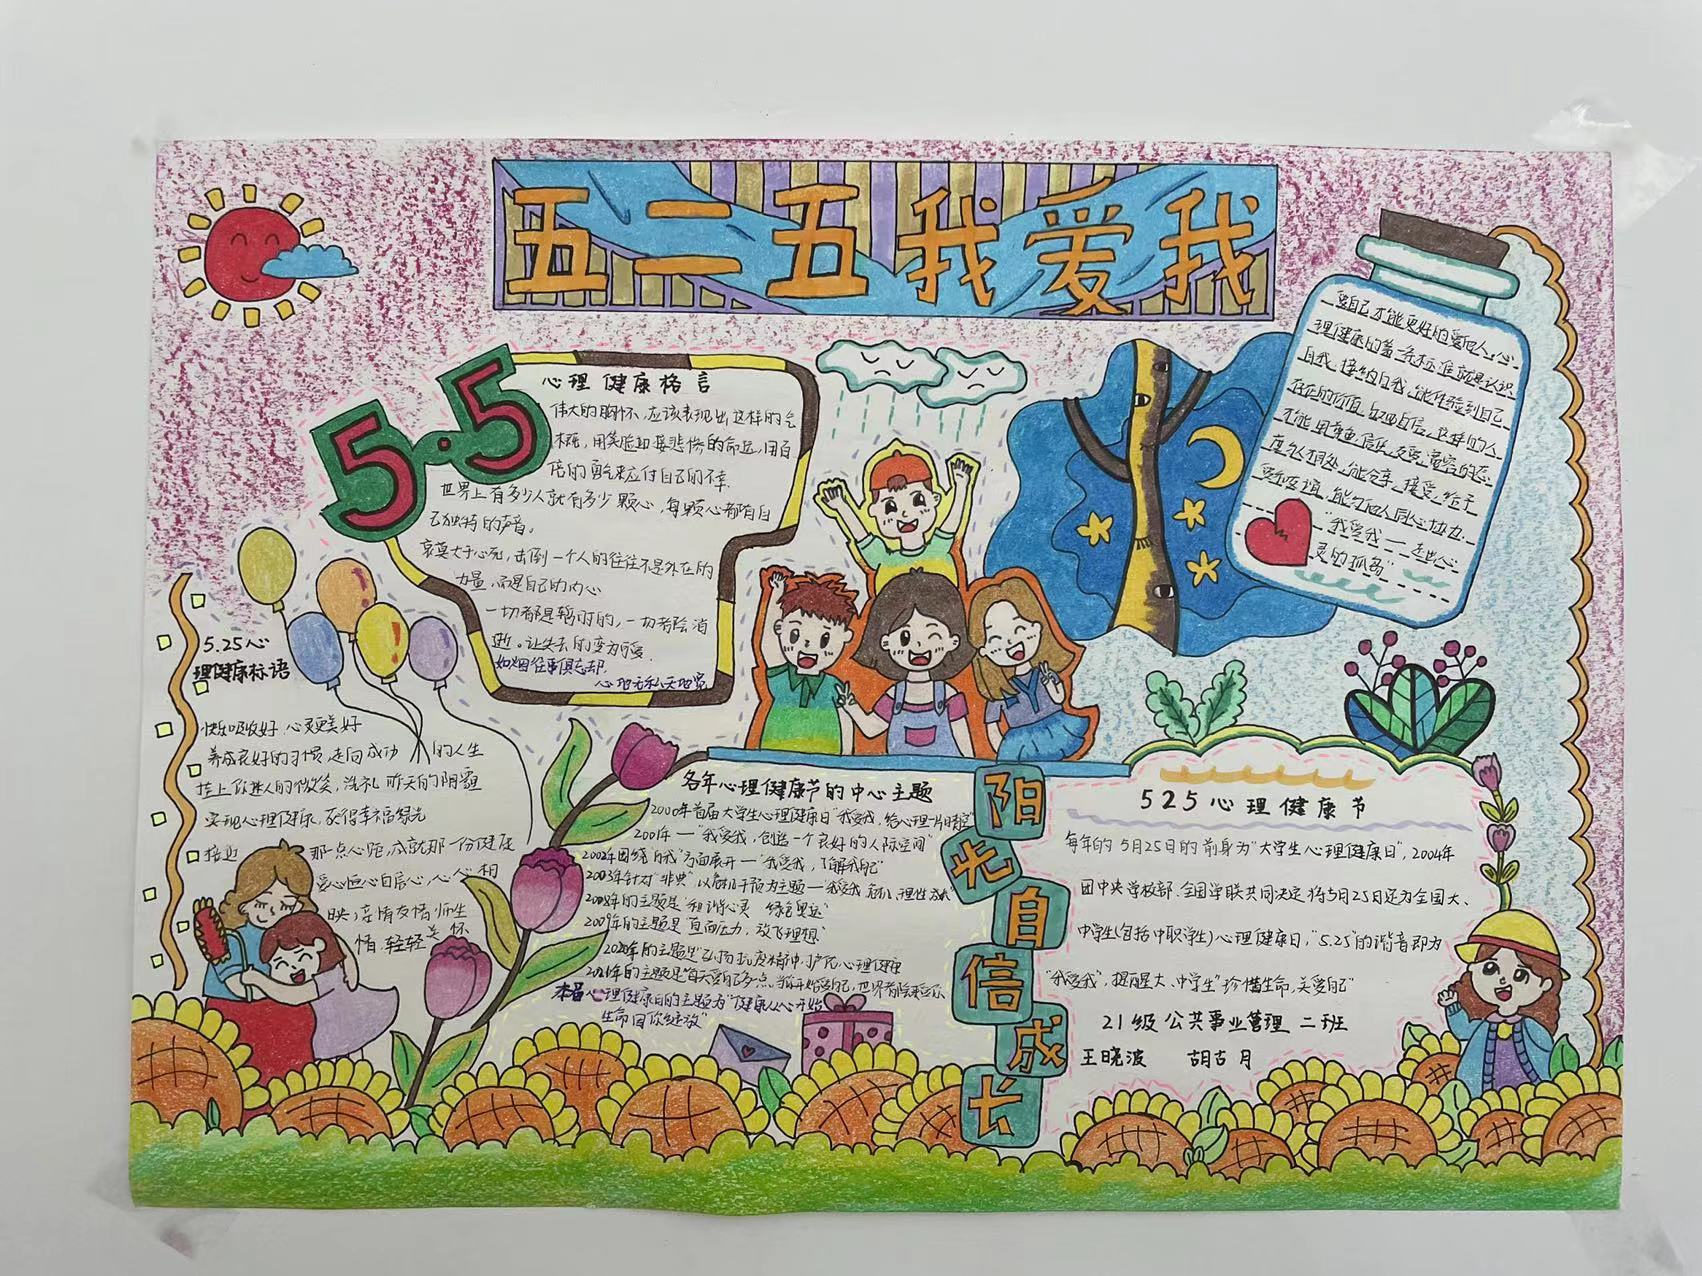 五二五我爱我
5·5
心理健康格言
伟大的胸怀,应该表现出这样的气
概,用笑脸迎接悲惨的命运,用百
倍的勇气来应付自己的不幸.
世界上有多少人就有多少颗心,每颗心都陪自
己独特的声音。
哀莫大于心死,击倒一个人的往往不是外在的
力量,而是自己的内心
一切都是暂时的,一切都会消
逝。让失去的变为可爱.
如烟往事俱忘却
心地无私天地宽
爱自己才能更好的爱他人,心
理健康的第一条标准就是认识
自我,接纳自我,能体验到自己
存在的价值,乐观自信,这样的人
才能用尊重,信任,友爱,宽容的态
度与人相处,能分享,接受,给予
爱和友谊,能与他人同心协力.
"我爱我——走出心
灵的孤岛"
5.25心
理健康标语
快乐吸收好,心灵更美好
养成良好的习惯,走向成功的人生
挂上你迷人的微笑,洗礼昨天的阴霾
实现心理健康,获得幸福绿光
接近那一点心距,成就那一份健康
爱心恒心自信心,心心相
映,亲情友情师生
情,轻轻关怀
各年心理健康节的中心主题
2000年首届大学生心理健康日"我爱我,给心理一片晴空"
2001年—"我爱我,创造一个良好的人际空间"
2002年围绕"自我"方面展开—"我爱我,了解我自己"
2003年针对"非典"以危机干预为主题—"我爱我,危机,理性,成长"
2008年的主题是"和谐心灵 绿色奥运"
2009年的主题是"直面压力,放飞理想"
2020年的主题是"弘扬抗疫精神,护佑心理健康
2021年的主题是"每天爱自己多点,
本届心理健康日的主题为"健康从心开始,
生命因你绽放"
阳光自信成长
525心理健康节
每年的5月25日的前身为"大学生心理健康日",2004年
团中央学校部、全国学联共同决定将5月25日还为全国大、
中学生(包括中职学生)心理健康日,"5.25"的谐音即为
"我爱我",提醒大、中学生"珍惜生命,关爱自己"
21级公共事业管理二班
王晓波 胡古月